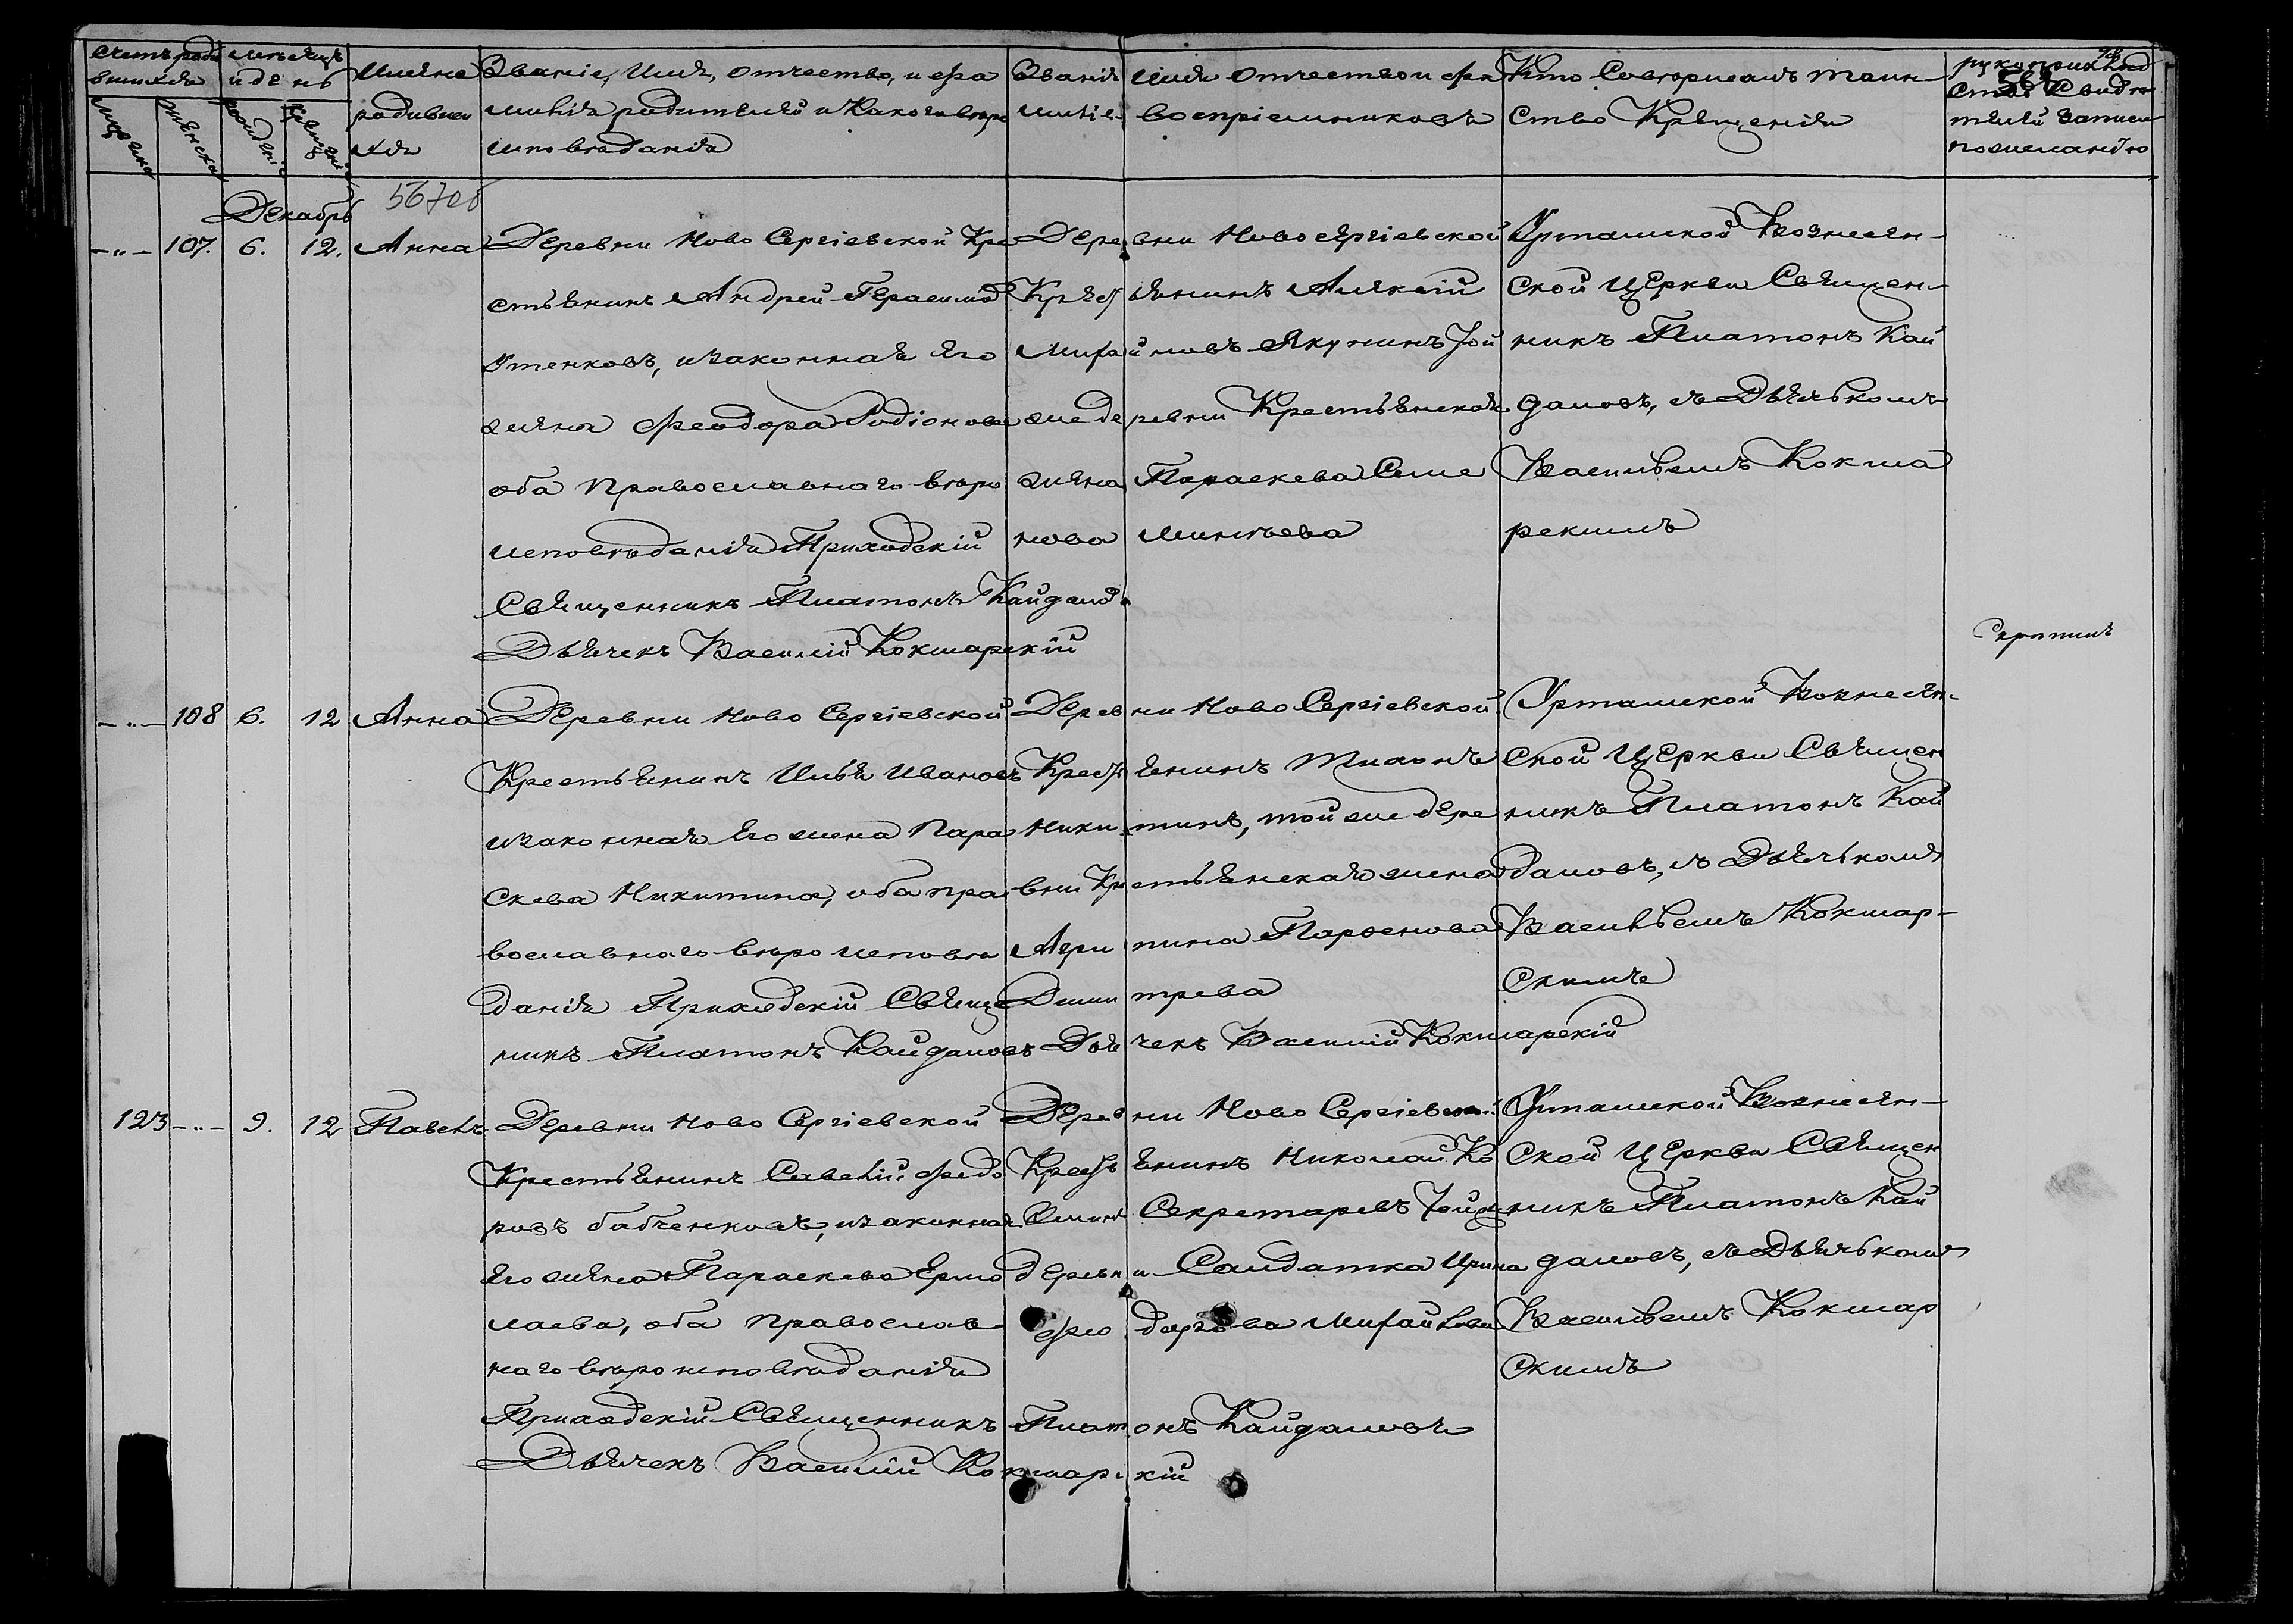 Счетъ роди
вшихся
мужеска
женска
Мѣсяцъ
и день
рожденія
крещенія
Имена
родивши
хся
Званіе, Имя, отчество, и фа
милія родителей и Какого вѣро
исповѣданія
Званія Имя отчество и фа
милія воспріемниковъ
Кто Совершалъ таин-
ство Крещенія
рукоприклад
Ство Свидѣ
телей записи
по желанію
567об
Декабрь
-„- 107. 6. 12. Анна
Деревни Ново Сергіевской Кре
стьянинъ Андрей Герасимов
Утенковъ, изаконная Его
жена Феодора Родіонова
оба Православнаго вѣро
исповѣданія Приходскій
Священникъ Платонъ Кайдалов
Дьячекъ Василій Кокшарскій
Деревни Ново сергіевской
Крестьянинъ Алексій
Михайловъ Якунинъ той
же деревни Крестьянская
жена Параскева Семе
нова Минтьева
Урташской Вознесен-
ской Церкви Священ-
никъ Платонъ Кай
даловъ, съ Дьячкомъ
Васильемъ Кокша
рскимъ
-„- 108 6. 12 Анна
Деревни Ново Сергіевской
Крестьянинъ Илья Ивановъ
изаконная Его жена Пара
скева Никитина, оба пра
вославнаго вѣро исповѣ
данія Приходскій Свяще
никъ Платонъ Кайдаловъ Дьячекъ Василій Кокшарскій
Деревни Ново Сергіевской
Крестьянинъ Тихонъ
Никитинъ, той же дере
вни Крестьянская жена
Агрипина Парфенова
Дмитрева
Урташской Вознесен-
ской Церкви Священ
никъ Платонъ Кай
даловъ, съ Дьячкомъ
Васильемъ Кокшар-
скимъ
123 -„- 9. 12 Павелъ
Деревни Ново Сергіевской
Крестьянинъ Савелій Федо
ровъ бабченковъ, изаконная
Его жена Параскева Ермо
лаева, оба Православ
наго вѣро исповѣданія
Приходскій Священникъ Платонъ Кайдаловъ
Дьячекъ Василій Кокшарскій
Деревни Ново Сергіевской
Крестьянинъ Николай Ко
Секретаревъ той
деревни Салдатка Ирина
Михайлова
Урташской Вознесен-
ской Церкви Священ
никъ Платонъ Кай
даловъ, съ Дьячкомъ
Васильемъ Кокшар
скимъ